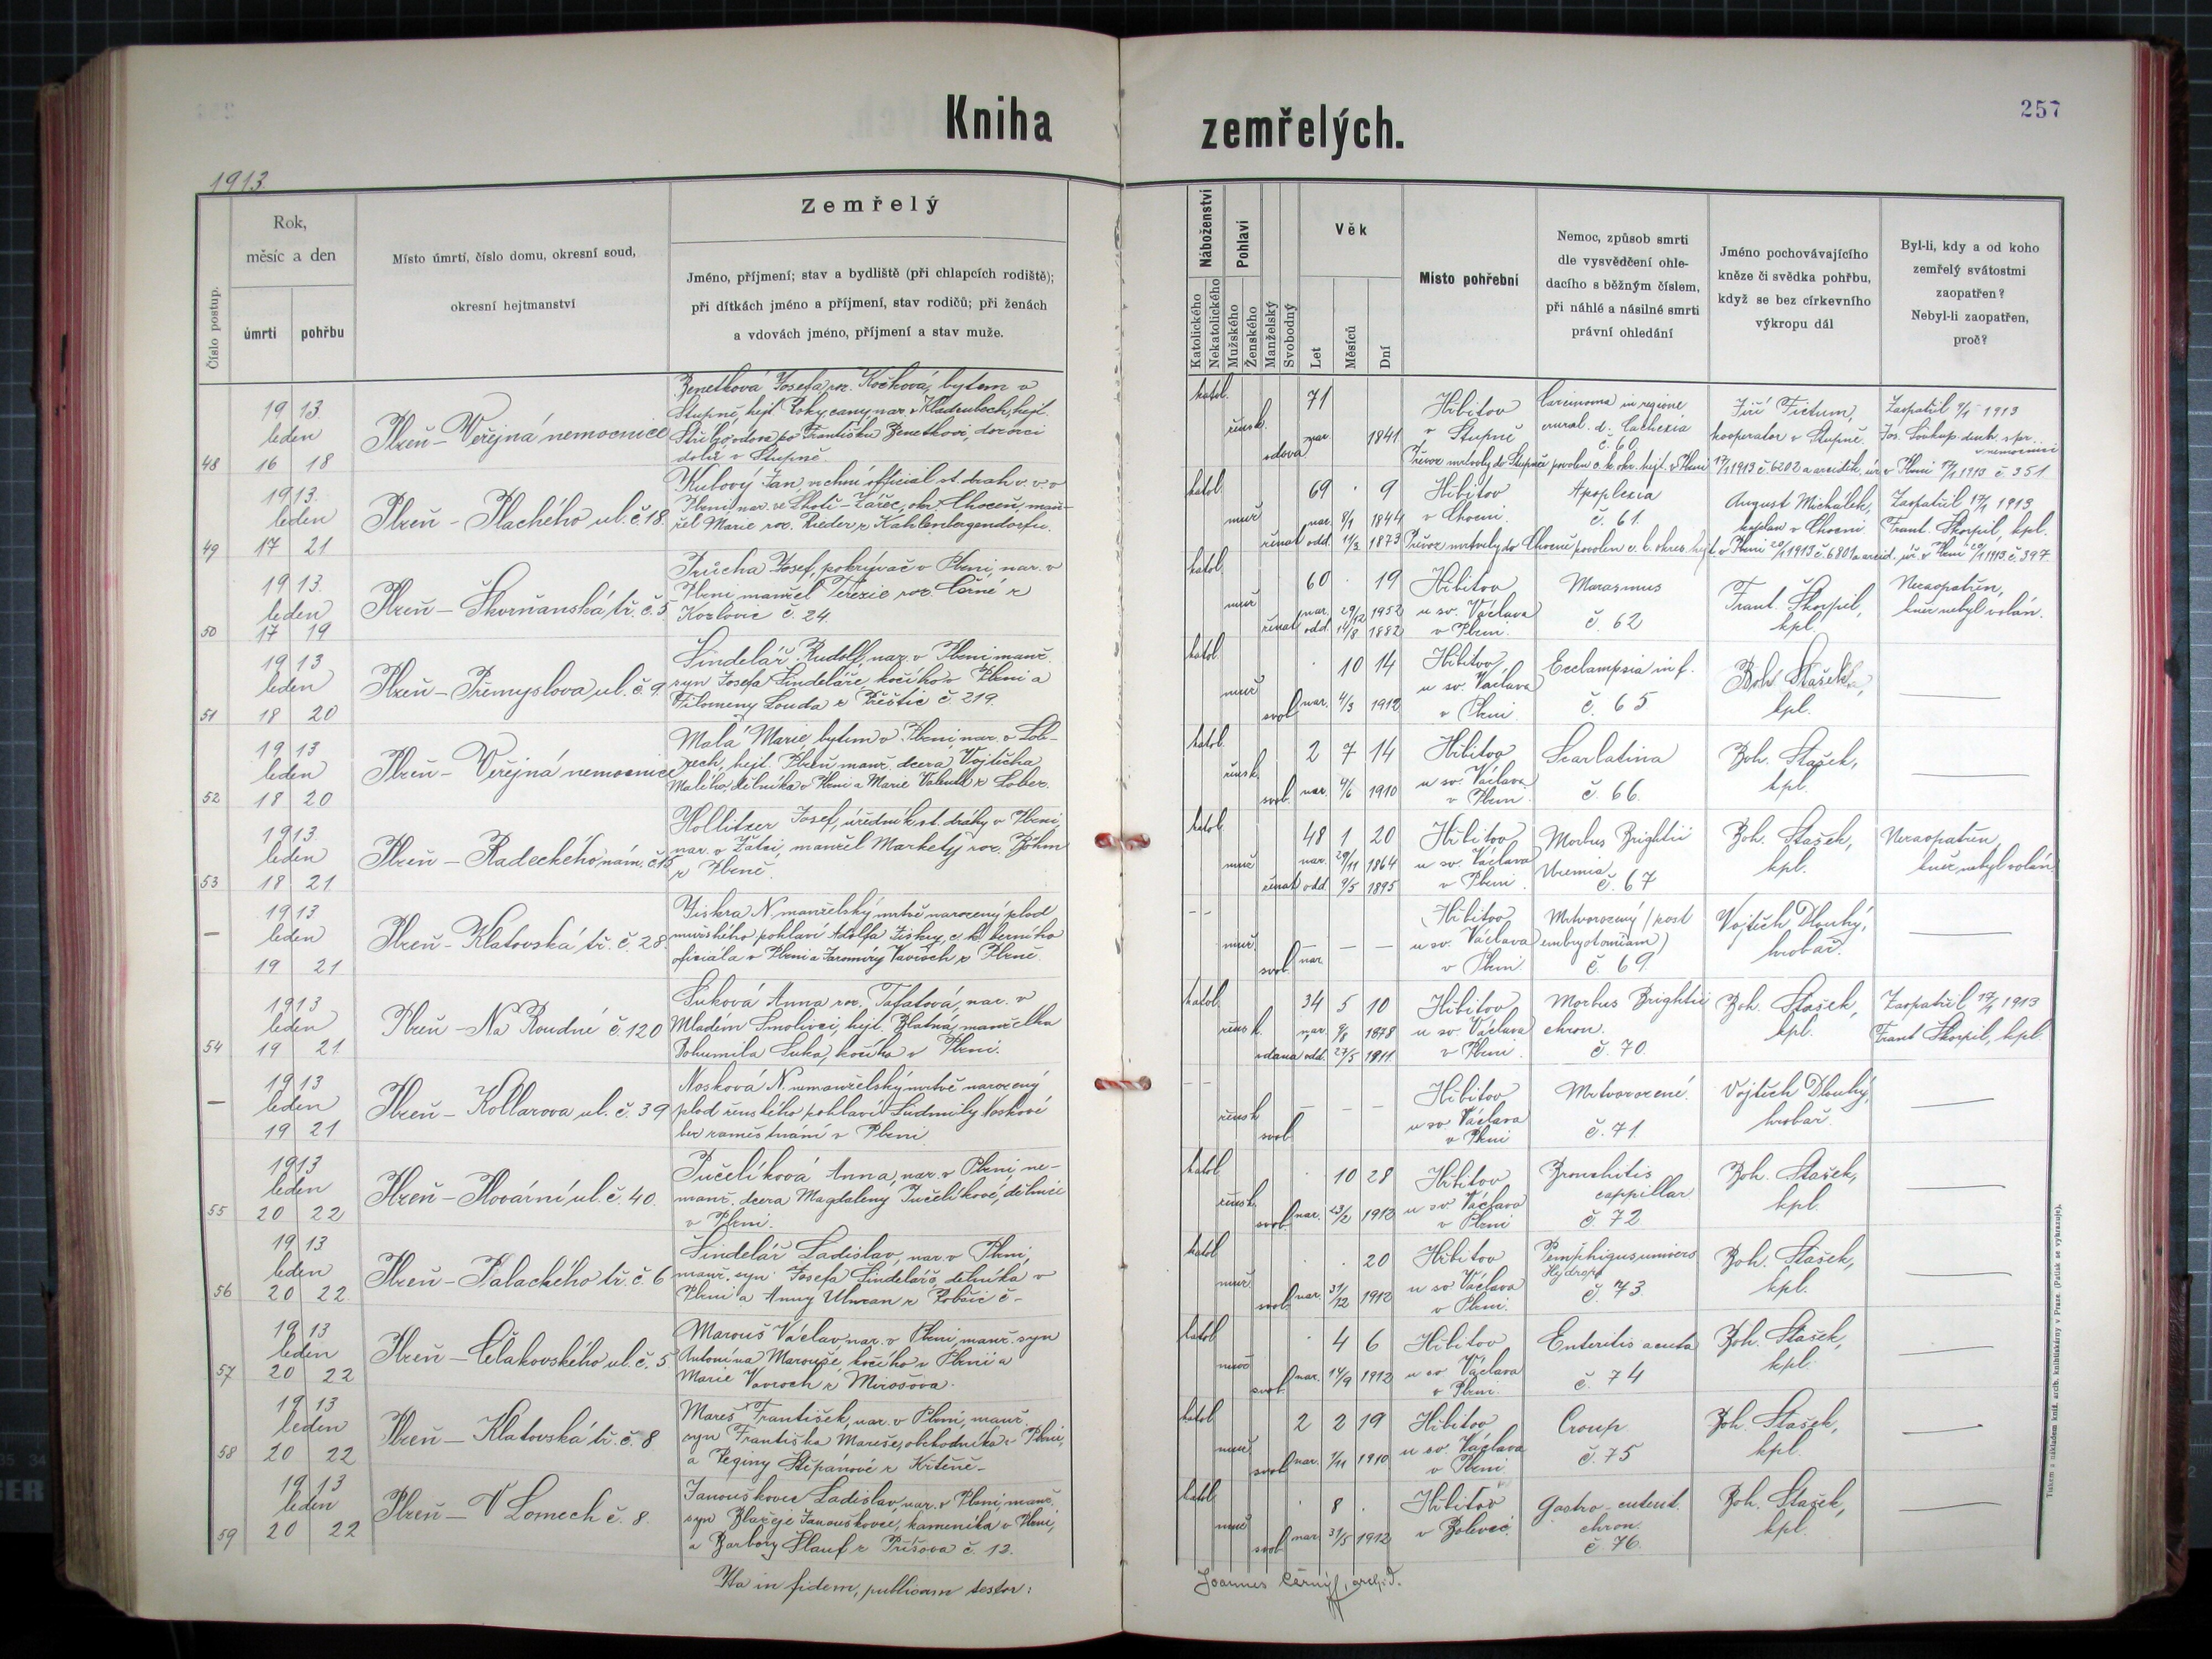 257
Kniha zemřelých.
1913.
Číslo postup.
Rok,
měsíc a den
úmrtí
pohřbu
Místo úmrtí, číslo domu, okresní soud,
okresní hejtmanství
Zemřelý
Jméno, příjmení; stav a bydliště (při chlapcích rodiště);
při dítkách jméno a příjmení, stav rodičů; při ženách
a vdovách jméno, příjmení a stav muže.
Náboženství
Katolického
Nekatolického
Pohlaví
Mužského
Ženského
Manželský
Svobodný
Věk
Let
Měsíců
Dní
Místo pohřební
Nemoc, způsob smrti
dle vysvědčení ohle-
dacího s běžným číslem,
při náhlé a násilné smrti
právní ohledání
Jméno pochovávajícího
kněze či svědka pohřbu,
když se bez církevního
výkropu dál
Byl-li, kdy a od koho
zemřelý svátostmi
zaopatřen?
Nebyl-li zaopatřen,
proč?
48
1913
leden
16 18
Plzeň - Veřejná nemocnice
Benetková Josefa roz. Kočková, bytem v
Stupně, hejt. Rokycany, nar. v Kladrubech, hejt.
Stříbro, vdova po Františku Benetkovi, dozorci
dolů v Stupně.
katol.
žensk.
vdova
71
nar. 1841
Hřbitov
v Stupně
Carcinoma in regione
crural. d. Cachexia
č. 60
Jiří Fictum,
kooperator v Stupně.
Zaopatřil 1913
Jos. Soukup duch. spr.
v nemocnici
Převoz mrtvoly do Stupně povolen c. k. okr. hejt. v Plzni 17/1 1913 č. 6202 a arciděk. úř. v Plzni 17/1 1913 č. 351
49
1913.
leden
17 21
Plzeň - Plachého ul. č. 18.
Kulový Jan, vrchní official st. drah v. v. v
Plzni, nar. ve Lhotě - Zářec, okr. Choceň, man-
žel Marie roz. Rieder z Kahlenbergendorfu.
katol.
muž.
ženat
69 . 9
nar. 8/1 1844
odd. 11/2 1873
Hřbitov
v Chocni.
Apoplexia
č. 61.
August Michálek,
kaplan v Chocni.
Zaopatřil 17/1 1913
Frant. Škorpil, kpl.
Převoz mrtvoly do Chocně povolen c. k. okres. hejt. v Plzni 20/1 1913 č. 6801 a arcid. úř. v Plzni 20/1 1913 č. 397.
50
1913.
leden
17 19
Plzeň - Škvrňanská tř. č. 5
Průcha Josef, pokrývač v Plzni, nar. v
Plzni, manžel Terezie roz. Černé z
Kozlovic č. 24.
katol.
muž
ženat
60 . 19
nar. 29/12 1952
odd. 14/8 1882
Hřbitov
u sv. Václava
v Plzni.
Marasmus
č. 62
Frant. Škorpil,
kpl.
Nezaopatřen,
kněz nebyl volán.
51
1913
leden
18 20
Plzeň - Přemyslova ul. č. 9
Šindelář Rudolf, nar. v Plzni, manž.
syn Josefa Šindeláře, kočího v Plzni a
Filomeny Louda z Přeštic č. 219.
katol.
muž
svob.
. 10 14
nar. 4/3 1912
Hřbitov
u sv. Václava
v Plzni.
Ecclampsia inf.
č. 65
Boh. Stašek,
kpl.
52
1913
leden
18 20
Plzeň - Veřejná nemocnice
Malá Marie, bytem v Plzni, nar. v Lob-
zech, hejt. Plzeň, manž. dcera Vojtěcha
Malého, dělníka v Plzni a Marie Valenta z Lobez.
katol.
žensk.
svob.
2 7 14
nar. 4/6 1910
Hřbitov
u sv. Václava
v Plzni
Scarlatina
č. 66.
Boh. Stašek,
kpl.
53
1913.
leden
18 21
Plzeň - Radeckého nám. č. 15
Hollitzer Josef, úředník st. dráhy v Plzni,
nar. v Žatci, manžel Markety roz. Böhm
z Plzně.
katol.
muž
ženat
48 1 20
nar. 29/11 1864
odd. 9/5 1895
Hřbitov
u sv. Václava
v Plzni.
Morbus Brightii
Uremia
č. 67
Boh. Stašek,
kpl.
Nezaopatřen,
kněz nebyl volán
—
1913
leden
19 21
Plzeň - Klatovská tř. č. 28
Jiskra N. manželský mrtvě narozený plod
mužského pohlaví Adolfa Jiskry, c. k. berního
oficiála v Plzni a Jaromíry Vavroch z Plzně.
muž.
svob.
nar. — — —
Hřbitov
u sv. Václava
v Plzni.
Mrtvorozený (post
embryotomiam)
č. 69.
Vojtěch Dlouhý,
hrobař.
54
1913
leden
19 21
Plzeň - Na Roudné č. 120
Suková Anna roz. Tafatová, nar. v
Mladém Smolivci, hejt. Blatná, manželka
Bohumila Suka, kočího v Plzni.
katol.
žensk.
vdaná
34 5 10
nar. 9/8 1878
odd. 27/5 1911.
Hřbitov
u sv. Václava
v Plzni.
Morbus Brightii
chron.
č. 70.
Boh. Stašek,
kpl.
Zaopatřil 17/1 1913
Frant Škorpil, kpl.
—
1913
leden
19 21
Plzeň - Kollarova ul. č. 39
Nosková N. nemanželský mrtvě narozený
plod ženského pohlaví Ludmily Noskové
bez zaměstnání v Plzni.
žensk
svob.
— — —
Hřbitov
u sv. Václava
v Plzni
Mrtvorozené.
č. 71.
Vojtěch Dlouhý,
hrobař.
55
1913
leden
20 22
Plzeň - Plovární ul. č. 40.
Pučelíková Anna, nar. v Plzni, ne-
manž. dcera Magdaleny Pučelíkové, dělnice
v Plzni.
katol.
žensk.
svob.
. 10 28
nar. 23/2 1912
Hřbitov
u sv. Václava
v Plzni
Bronchitis
cappillar
č. 72
Boh. Stašek,
kpl.
56
1913
leden
20 22
Plzeň - Palackého tř. č. 6
Šindelář Ladislav, nar. v Plzni,
manž. syn Josefa Šindeláře, dělníka v
Plzni a Anny Ulman z Robčic č -
katol
muž.
svob.
. . 20
nar. 31/12 1912
Hřbitov
u sv. Václava
v Plzni.
Pemphigus univers
Hydrops
č. 73.
Boh. Stašek,
kpl.
57
1913
leden
20 22
Plzeň - Čelakovského ul. č. 5
Marouš Václav, nar. v Plzni, manž. syn
Antonína Marouše, kočího v Plzni a
Marie Vavroch z Mirošova.
katol
muž
svob.
. 4 6
nar. 14/9 1912
Hřbitov
u sv. Václava
v Plzni.
Enteritis acuta
č. 74
Boh. Stašek,
kpl.
58
1913
leden
20 22
Plzeň - Klatovská tř. č. 8
Mareš František, nar. v Plzni, manž.
syn Františka Mareše, obchodníka v Plzni,
a Reginy Štěpánové z Krtěně -
katol
muž.
svob.
2 2 19
nar. 1/11 1910
Hřbitov
u sv. Václava
v Plzni
Croup
č. 75
Boh. Stašek,
kpl.
59
1913
leden
20 22
Plzeň - V Lomech č. 8.
Janouškovec Ladislav, nar. v Plzni, manž.
syn Blažeje Janouškovce, kameníka v Plzni,
a Barbory Šlauf z Příšova č. 13.
katol
muž
svob.
. 8 .
nar. 31/5 1912
Hřbitov
v Bolevci.
Gastro-enterit.
chron.
č. 76.
Boh. Stašek,
kpl.
Ita in fidem publicam testor:
Joannes Černý, archid.